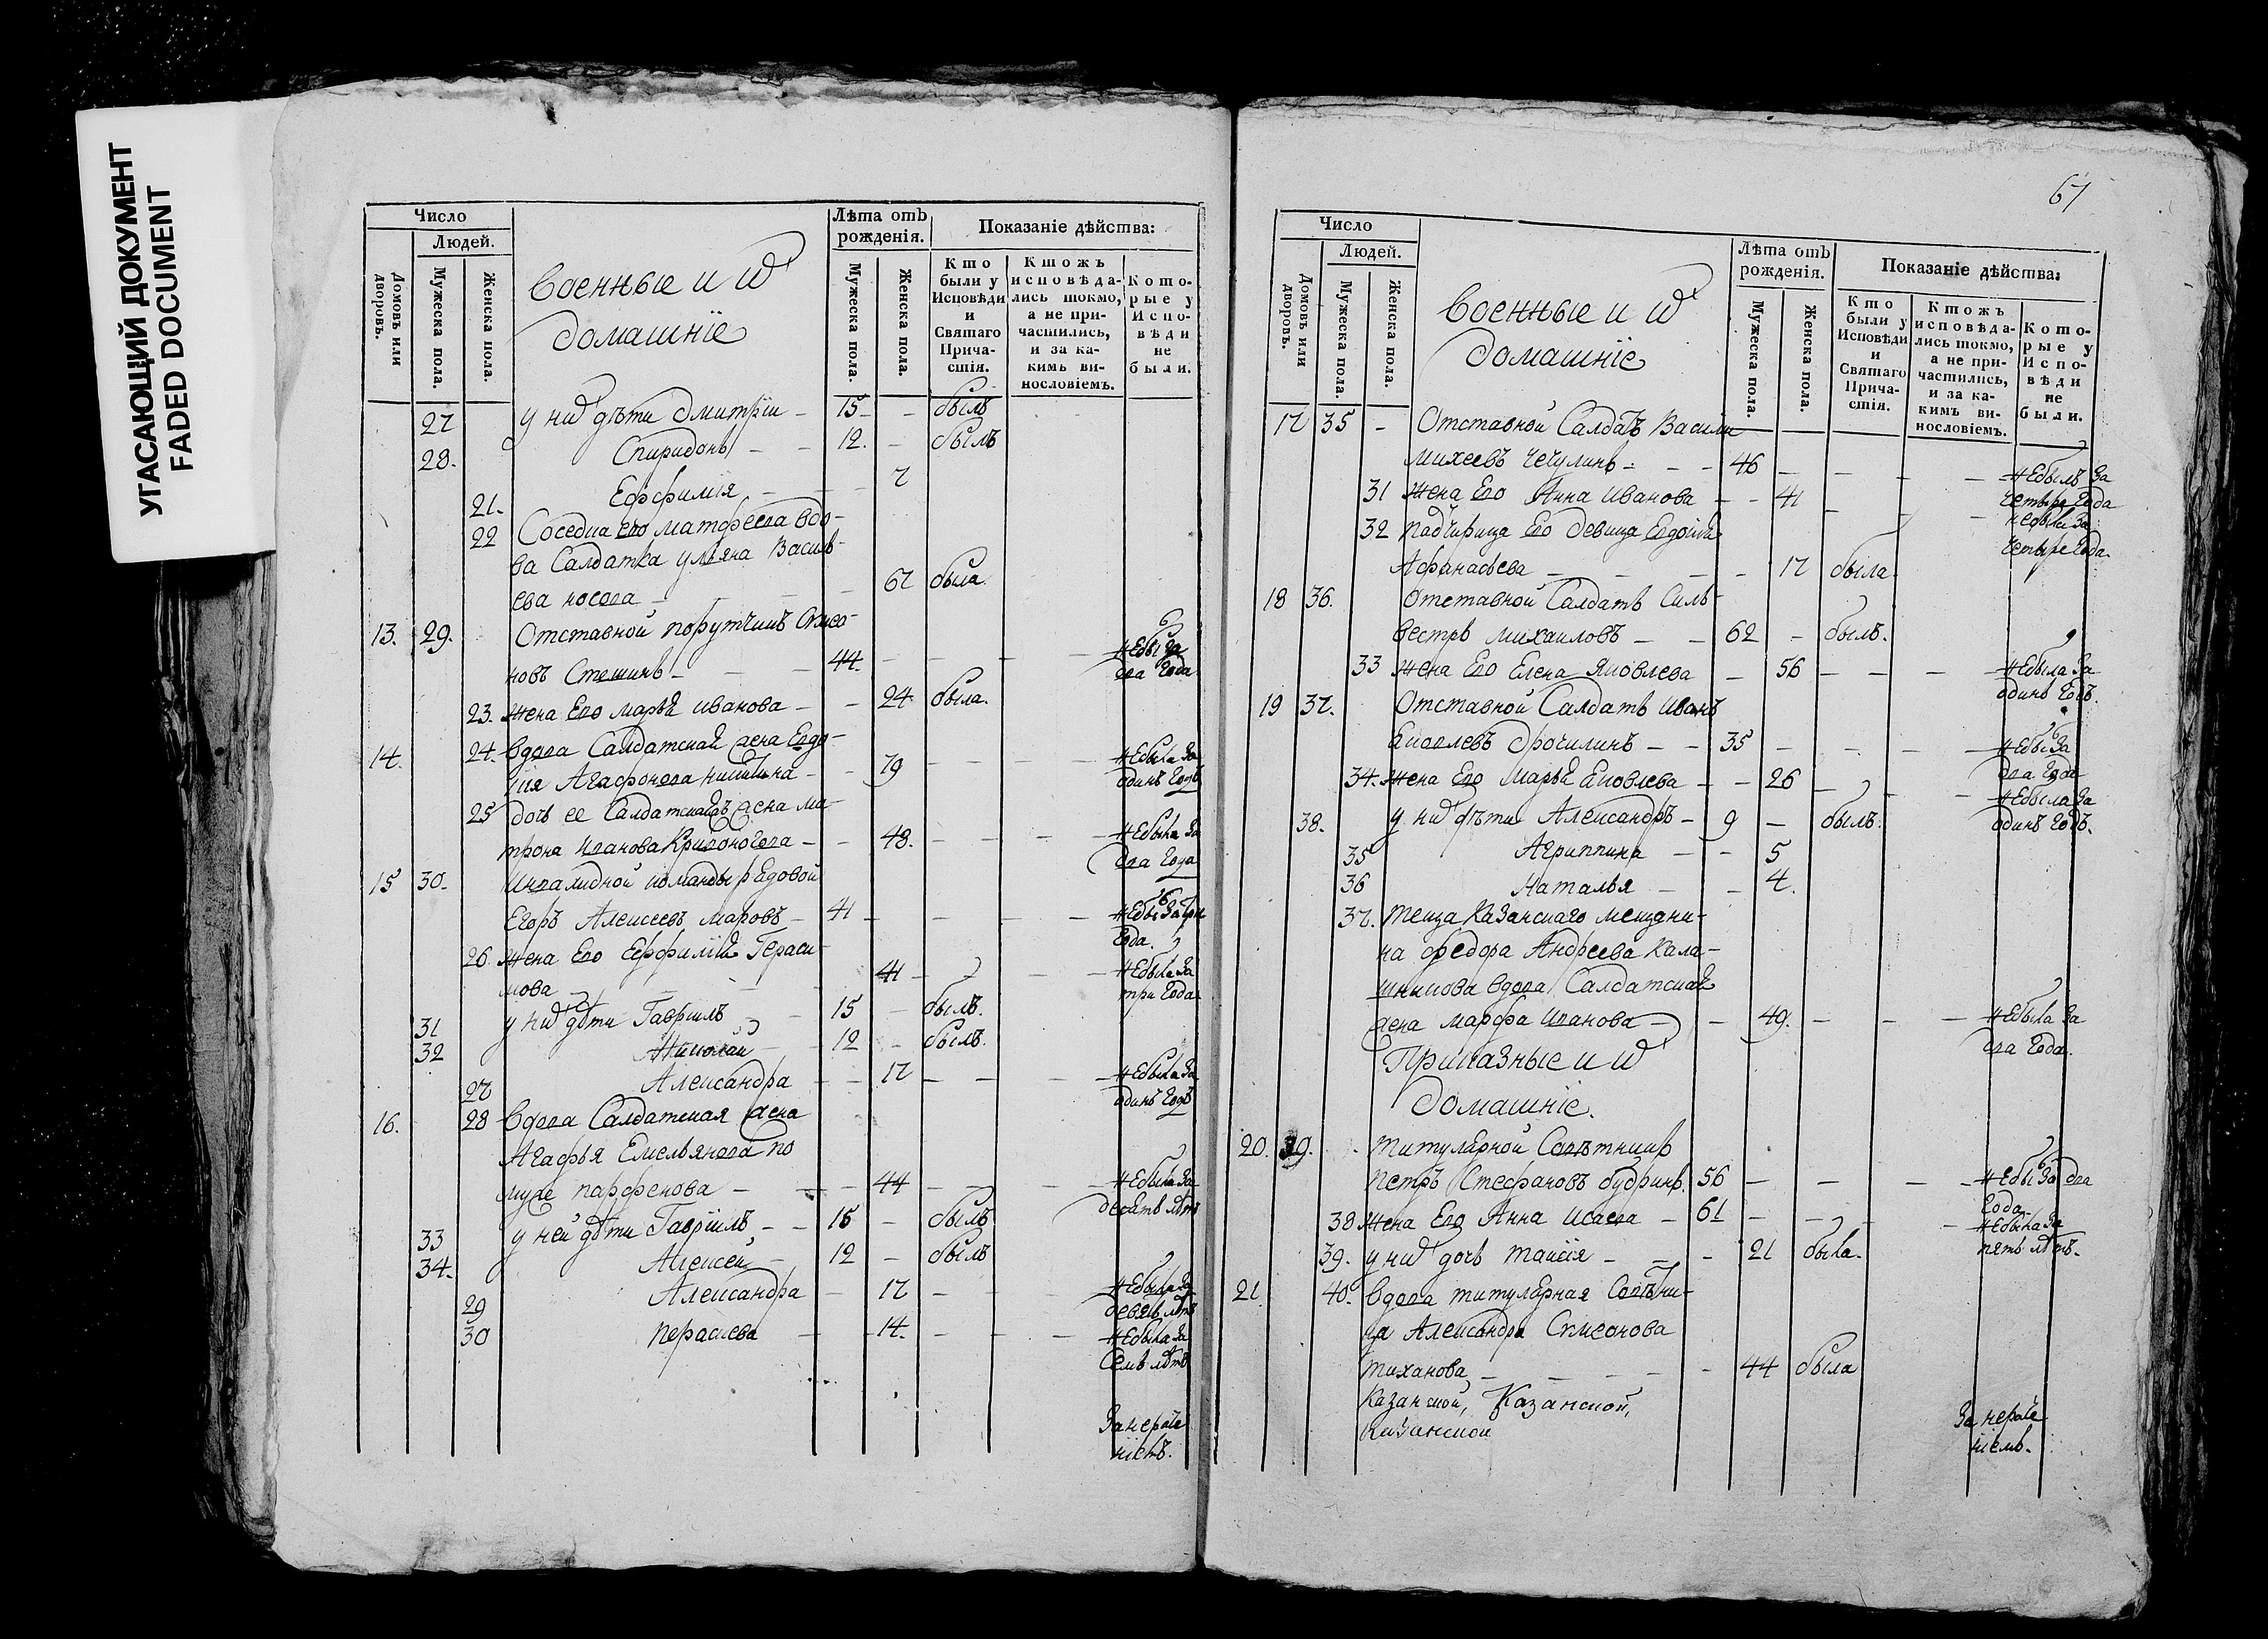 УГАСАЮЩИЙ ДОКУМЕНТ
FADED DOCUMENT
Число
Людей.
Домовъ или дворовъ.
Мужеска пола.
Женска пола.
военные и их
домашніе
Лѣта отъ рожденія.
Мужеска пола.
Женска пола.
Показаніе дѣйства:
Кто были у Исповѣди и Святаго Причастія.
Ктожъ исповѣдались токмо, а не причастились, и за какимъ винословіемъ.
Которые у Исповѣди не были.
27 у них дѣти Дмитріи – 15 – былъ
28. Спиридонъ – 12. – былъ
21. Евфимія – 7
22 Соседка его матфеева вдо-
ва Салдатка ульяна Василь-
ева носова – 67 была.
13. 29. Отставной порутчикъ Симео-
новъ Стешинъ – 44. – небы за
два года
23. жена Его марья иванова – 24 была.
14. 24. вдова Салдатская жена Евдо-
кія Агафонова никитина – 79 – небыла за
одинъ годъ
25 дочь ее Салдатская жена ма-
трона иванова Кривоногова – 48. – небыла за
два года
15 30. Инвалидной команды рядовой
Егоръ Алексеевъ маровъ – 41 – небы за три
года.
26. жена Его Евфимія Гераси-
мова – 41 – небыла за
три года
31 у них дѣти Гаврилъ 15 – былъ.
32 Николай – 12 – былъ.
27 Александра – 17 – небыла за
одинъ годъ
16. 28 вдова Салдатская жена
Агафья Емельянова по
муже парфенова – 44 – небыла за
десять лѣтъ
33 у ней дѣти Гавріилъ – 15 – былъ
34. Алексей – 12 – былъ
29 Александра – 17 – небыла за
девять лѣтъ
30 параскева – 14. – небыла за
семь лѣтъ
За нераче
ніемъ.
67
Число
Людей.
Домовъ или дворовъ.
Мужеска пола.
Женска пола.
военные и их
домашніе
Лѣта отъ рожденія.
Мужеска пола.
Женска пола.
Показаніе дѣйства:
Кто были у Исповѣди и Святаго Причастія.
Ктожъ исповѣдались токмо, а не причастились, и за какимъ винословіемъ.
Которые у Исповѣди не были.
17 35 – Отставной Салдатъ Василіи
михеевъ чечулинъ – 46 – небылъ за
четыре года
31 жена Его Анна иванова – 41 – небыла за
четыре года
32 падчирица Его девица Евдокія
Афанасьева – 17 была.
18 36. Отставной Салдатъ Силь-
вестръ михаиловъ – 62 – былъ.
33 жена Его Елена Яковлева – 56 – небыла за
одинъ годъ.
19 37. Отставной Салдатъ иванъ
Яковлевъ дрочилинъ – 35 – небы за
два года
34. жена Его марья Яковлева – 26 – небыла за
одинъ годъ.
38. у них дѣти Александръ – 9 – былъ.
35 Агриппина – 5
36 Наталья – 4.
37. теща Казанскаго мещани-
на федора Андреева Кала-
шникова вдова Салдатская
жена марфа иванова – 49. – небыла за
два года.
Приказные и их
домашніе.
20. 39. титулярной Совѣтникъ
петръ Стефановъ бубринъ. 56 – небы за два
года
38 жена Его Анна исаева – 61 – небыла за
пять лѣтъ.
39. у них дочь таисія – 21 была.
21. 40. вдова титулярная Совѣтни-
ца Александра Симеонова
тиханова – 44 была
Казанской, Казанской,
Казанской
За нераче
ніемъ.